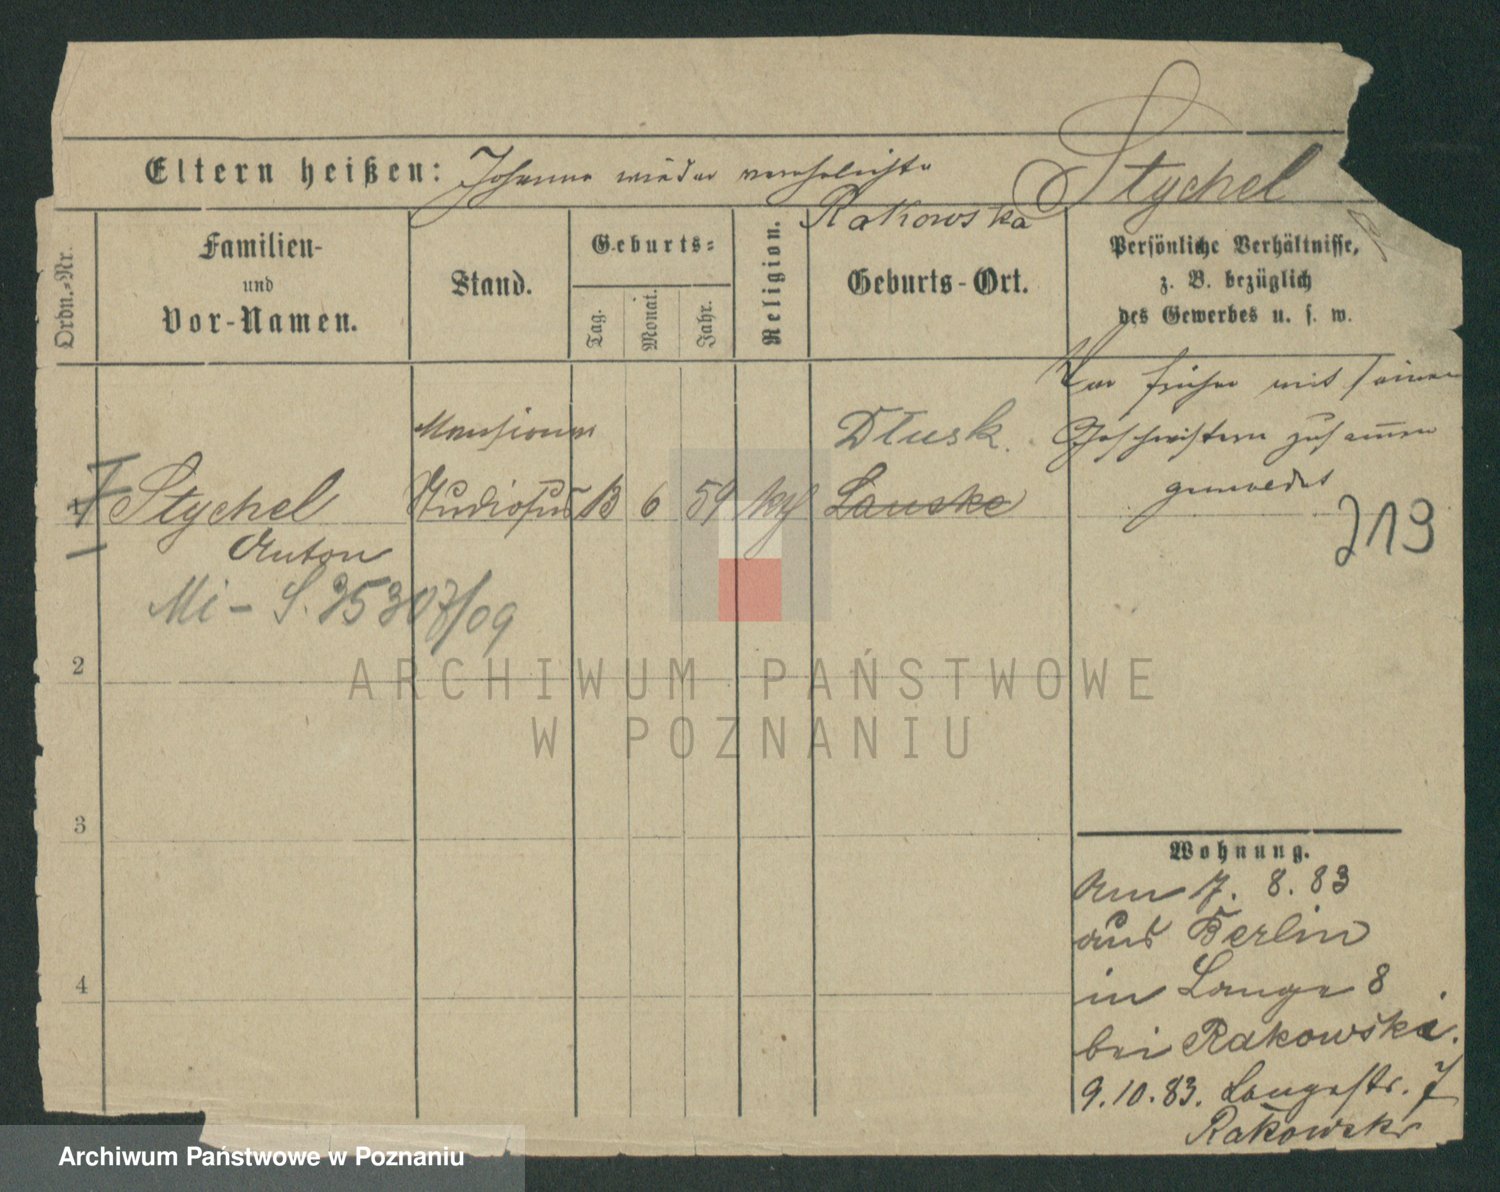 Stychel
Eltern heißen: Johanna wieder verehelichte
Rakowska
Ordn.-Nr.
Familien-
und
Vor-Namen.
Stand.
Geburts-
Tag.
Monat.
Jahr.
Religion.
Geburts-Ort.
Persönliche Verhältnisse,
z. B. bezüglich
des Gewerbes u. s. w.
1 Stychel
Anton
Mansionar
Studiosus
13 6 59 kth
Dłusk.
Lauske
War früher mit seinen
Geschwistern zusammen
gemeldet
219
Mi - S. 35307/09
2
3
4
Wohnung.
Am 7. 8. 83
aus Berlin
in Lange 8
bei Rakowski.
9.10.83. Langestr. 7
Rakowski
ARCHIWUM PAŃSTWOWE
W POZNANIU
Archiwum Państwowe w Poznaniu